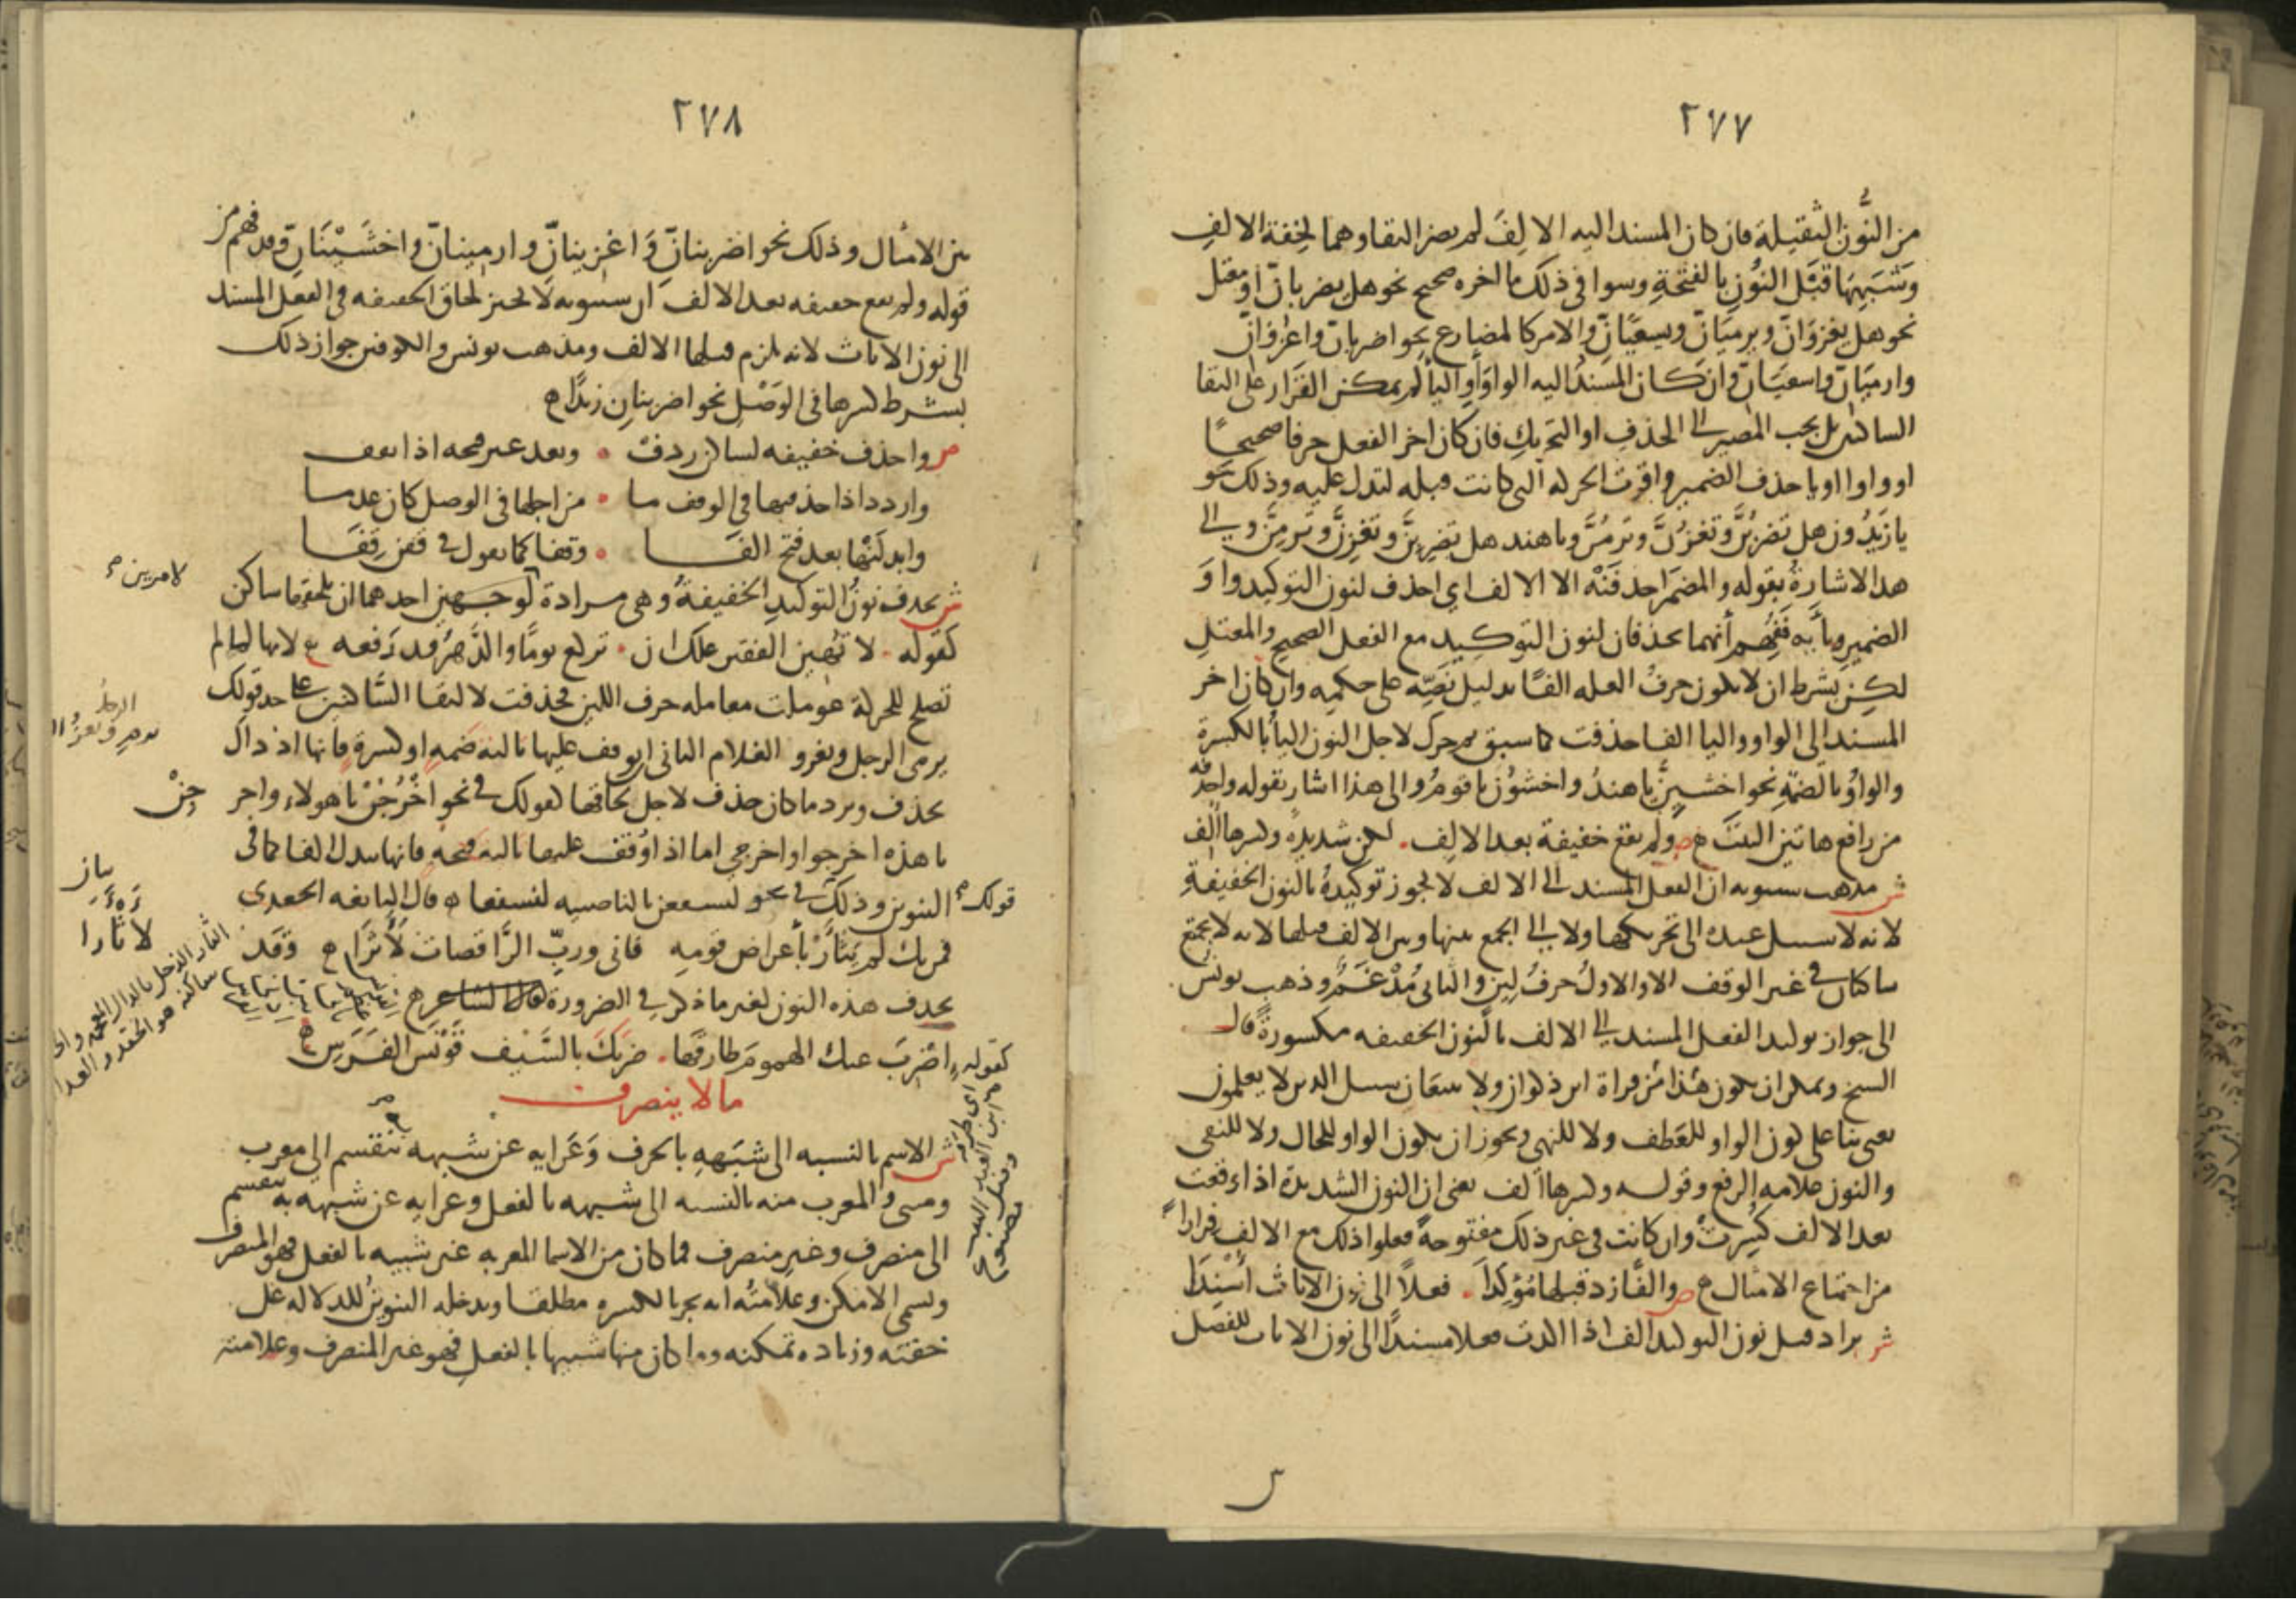 ٢٧٧
من النُّون الثقيلة فان كان المسند اليه الالِفَ لم يضر التقاوهما لخِفة الالف
وَشبَهِهَا قبَّل النُون بالفتحةِ وسوا فى ذلك ما اخره صحيح نحو هل يضربانّ او معتل
نحو هل يغزوَانّ ويرميَانّ ويسعيَانّ والامر كالمضارع نحو اضربانّ واغزوانّ
وارميَانّ واسعيَانّ وان كان المسندُ اليه الواوَ أو اليأ لم يمكن القَرار على التقا
الساكنين بل يجب المصير الى الحذف او التحريك فان كان اخر الفعل حرفا صحيحًا
او واوا او يا حذف الضمير واقرت الحركه التى كانت قبله لتدل عليه وذلك نحو
يا زَيدُون هل تضرِبُنَّ وتغزُنَّ وترمُنَّ ويا هند هل تضرِبِنَّ وتغزِنَّ وترمِنَّ والى
هذا الاشارةُ بقوله والمضمَر احذفَنّه الا الالف اى احذف لنون التوكيد واوَ
الضمير ويأَه ففُهِم أنهما يحذفان لنون التوكيد مع الفعل الصحيح والمعتل
لكن بشرط ان لا يكون حرفُ العله الفًا بدليل نَصِّه على حكمه وان كان اخر
المسند الى الواو واليا الفا حذفت كما سبق ثم حرك لاجل النون اليأُ بالكسرة
والواوُ بالضمَّةِ نحو اخشيِنَّ يا هندُ واخشوُنّ يا قومُ والى هذا اشار بقوله واحذفه
من رافع هاتين البيت ص ولم تقع خفيفة بعد الالف • لكن شديدةٌ وكسرها أُلف
ش مذهب سيبويه ان الفعل المسند الى الالف لا يجوز توكيدهُ بالنون الخفيفةِ
لانه لا سبيل عنده الى تحريكها ولا الى الجمع بينها وبين الالف قبلها لانه لا يجتمع
ساكنان فى غير الوقف الا والاولُ حرفُ لين والثانى مُدْغَمٌ وذهب يونس
الى جواز توكيد الفعل المسند الى الالف بالنون الخفيفه مكسورةً قال
الشيخ ويمكن ان يكون هذا من قراة ابن ذكوان ولا تتبعَانِ سبيل الذين لا يعلمون
يعنى بنا على كون الواو للعَطف ولا للنهى ويجوز ان يكون الواو للحال ولا للنفى
والنون علامه الرفع وقوله وكسرها أُلف يعنى ان النون الشديدة اذا وقعت
بعد الالف كُسِرت وان كانت فى غير ذلك مفتوحةً فعلوا ذلك مع الالف فرارا
من اجتماع الامثال ص والفًا زد قبلها مُؤكِّدَا • فعلاً الى نون الاناث أُسْنِدَا
ش يزاد قبل نون التوكيد الف اذا اكدت فعلا مسندًا الى نون الاناث للفصل
٢٧٨
بين الامثال وذلك نحو اضربنانّ وَاغزينانّ وارمينانّ واخشَينَانّ وقد فهم من
قوله ولم تقع خفيفه بعد الالف ان سيبويه لا يجيز لحاق الخفيفه فى الفعل المسند
الى نون الاناث لانه يلزم قبلها الالف ومذهب يونس والكوفيين جواز ذلك
بشرط كسرها فى الوَصْل نحو اضربنانِ زيدًا
ص واحذف خفيفه لساكن ردف • وبعد غير فتحه اذا تقف
واردد اذا حذفتها فى الوقف ما • من اجلها فى الوصل كان عدما
وابدلَنْها بعد فتح الفَا • وقفا كما تقول فى قفن قِفَا
ش يحذف نونُ التوكيد الخفيفةُ وهى مرادة لوجهين احدهما ان يلحقها ساكن
لامرين
كقوله • لا تهينَ الفقير علك ان • تركع يومًا والدَّهرُ قد رَفعه لانها لما لم
تصلح للحركة عوملت معامله حرف اللين فحذفت لالتقا السَّاكنين على حد قولك
يرمى الرجل ويغزو الغلام الثانى ان يوقف عليها تاليةَ ضمه او كسرة فانها اذ ذاك
تحذف ويرد ما كان حذف لاجل لحاقها كقولك فى نحو اخْرُجُنْ يا هولاء واخر
جِنْ
يا هذه اخرجوا واخرجى اما اذا وُقف عليها تاليه فتحه فانها تبدل الفا كما فى
قولك التنوين وذلك فى نحو لنسفعن بالناصيه لنسفعا قال النابغه الجعدى
فمن يك لم يَثأَرْ بأعراض قومه فانى وربِّ الرَّاقصات لَأَثْأَرا وقد
لاثأرا
يحذف هذه النون لغير ما ذكر فى الضرورة قال الشاعر
كقوله اضرِبَ عنك الهمومَ طارقَها • ضربَكَ بالسَّيف قَوْنَسَ الفَرَسِ
ما لا ينصرف
ش الاسم بالنسبه الى شبَهِهِ بالحرف وَعَرَايه عن شبهه ينقسم الى معرب
ومبنى والمعرب منه بالنسبه الى شبهه بالفعل وعرايه عن شبهه به ينقسم
الى منصرف وغير منصرف فما كان من الاسما المعربه غير شبيه بالفعل فهو المنصرف
ويسمى الامكن وعلامتُه انه يجر بالكسره مطلقا ويدخله التنوينُ للدلاله على
خفته وزياده تمكنه وما كان منها شبيها بالفعل فهو غير المنصرف وعلامته